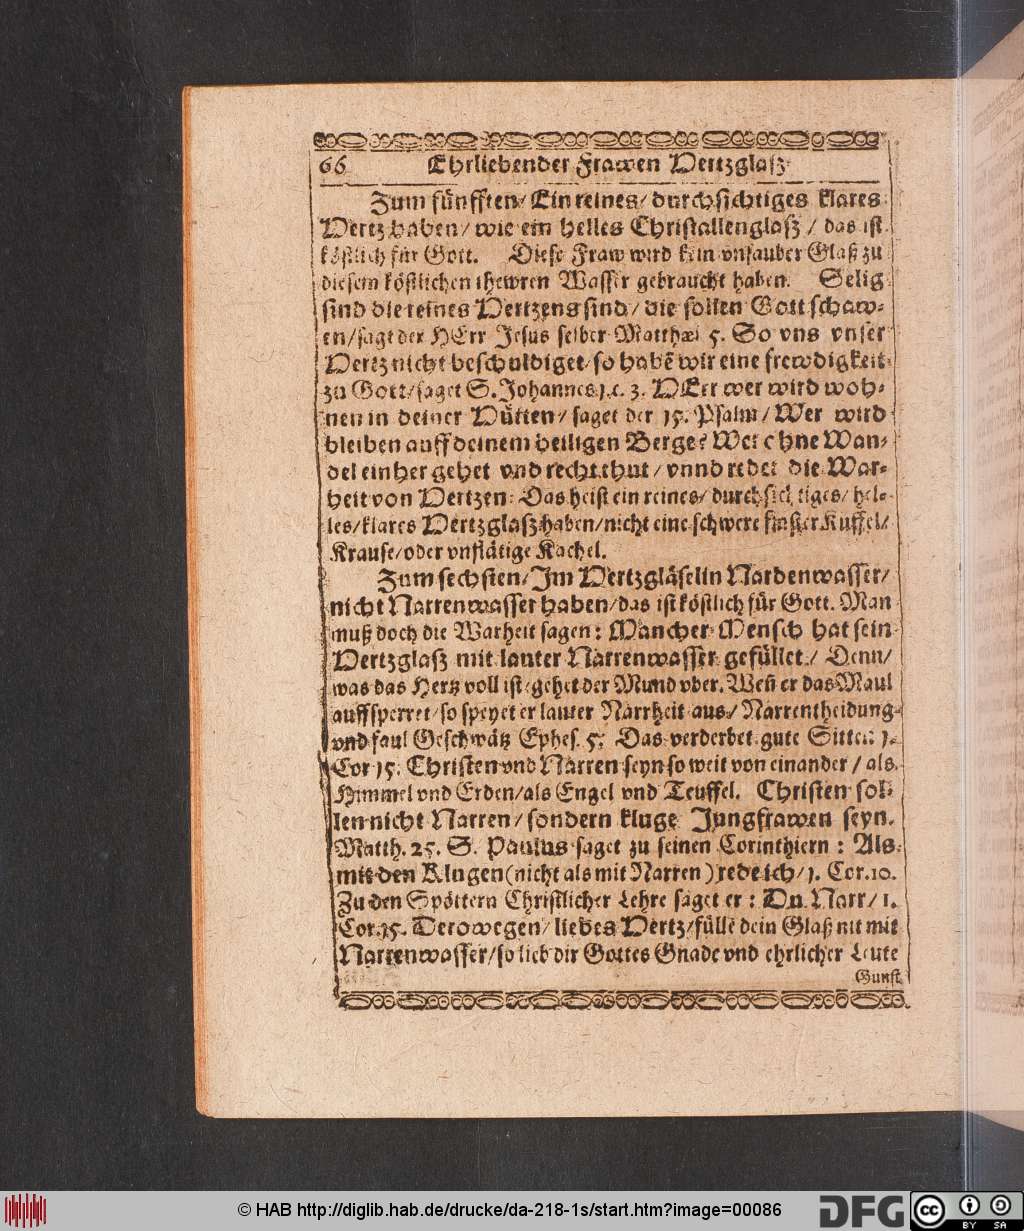 66 Ehrliebender Frawen Hertzglaß
Zum fünfften/ Ein reines/ durchsichtiges klares
Hertz haben/ wie ein helles Christallenglaß/ das ist
köstlich für Gott. Diese Fraw wird kein vnsauber Glaß zu
diesem köstlichen thewren Wasser gebraucht haben. Selig
sind die reines Hertzens sind/ die sollen Gott schaw-
en/ sagt der HErr Jesus selber Matthæi 5. So vns vnser
Hertz nicht beschuldiget/ so habẽ wir eine frewdigkeit
zu Gott/ saget S. Johannes 1. c. 3. HErr wer wird woh-
nen in deiner Hütten/ saget der 15. Psalm/ Wer wird
bleiben auff deinem heiligen Berge? Wer ohne Wan-
del einher gehet vnd recht thut/ vnnd redet die War-
heit von Hertzen: Das heist ein reines/ durchsichtiges/ hel-
les/ klares Hertzglaß haben/ nicht eine schwere finster Kuffel/
Krause/ oder vnflätige Kachel.
Zum sechsten/ Im Hertzgläselin Nardenwasser/
nicht Narrenwasser haben/ das ist köstlich für Gott. Man
muß doch die Warheit sagen: Mancher Mensch hat sein
Hertzglaß mit lauter Narrenwasser gefüllet/ Denn/
was das Hertz voll ist/ gehet der Mund vber. Weñ er das Maul
auffsperret/ so speyet er lauter Narrheit aus/ Narrentheidung
vnd faul Geschwätz Ephes. 5. Das verderbet gute Sitten 1.
Cor 15. Christen vnd Narren seyn so weit von einander/ als
Himmel vnd Erden/ als Engel vnd Teuffel. Christen sol-
len nicht Narren/ sondern kluge Jungfrawen seyn.
Matth. 25. S. Paulus saget zu seinen Corinthiern: Als
mit den Klugen (nicht als mit Narren) rede ich/ 1. Cor. 10.
Zu den Spöttern Christlicher Lehre saget er: Du Narr/ 1.
Cor. 15. Derowegen/ liebes Hertz/ fülle dein Glaß nit mit
Narrenwasser/ so lieb dir Gottes Gnade vnd ehrlicher Leute
Gunst
© HAB http://diglib.hab.de/drucke/da-218-1s/start.htm?image=00086
DFG
cc BY SA